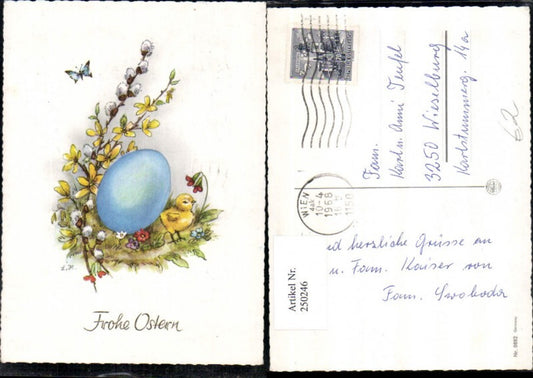 Frohe Ostern
Fam.
Karl u. Anni Teufel
3250 Wieselburg
14a
62
WIEN
10-4
1968
1150
Artikel Nr.
250246
herzliche Grüsse an
u. Fam. Kaiser von
Fam. Swoboda
Nr. 9892